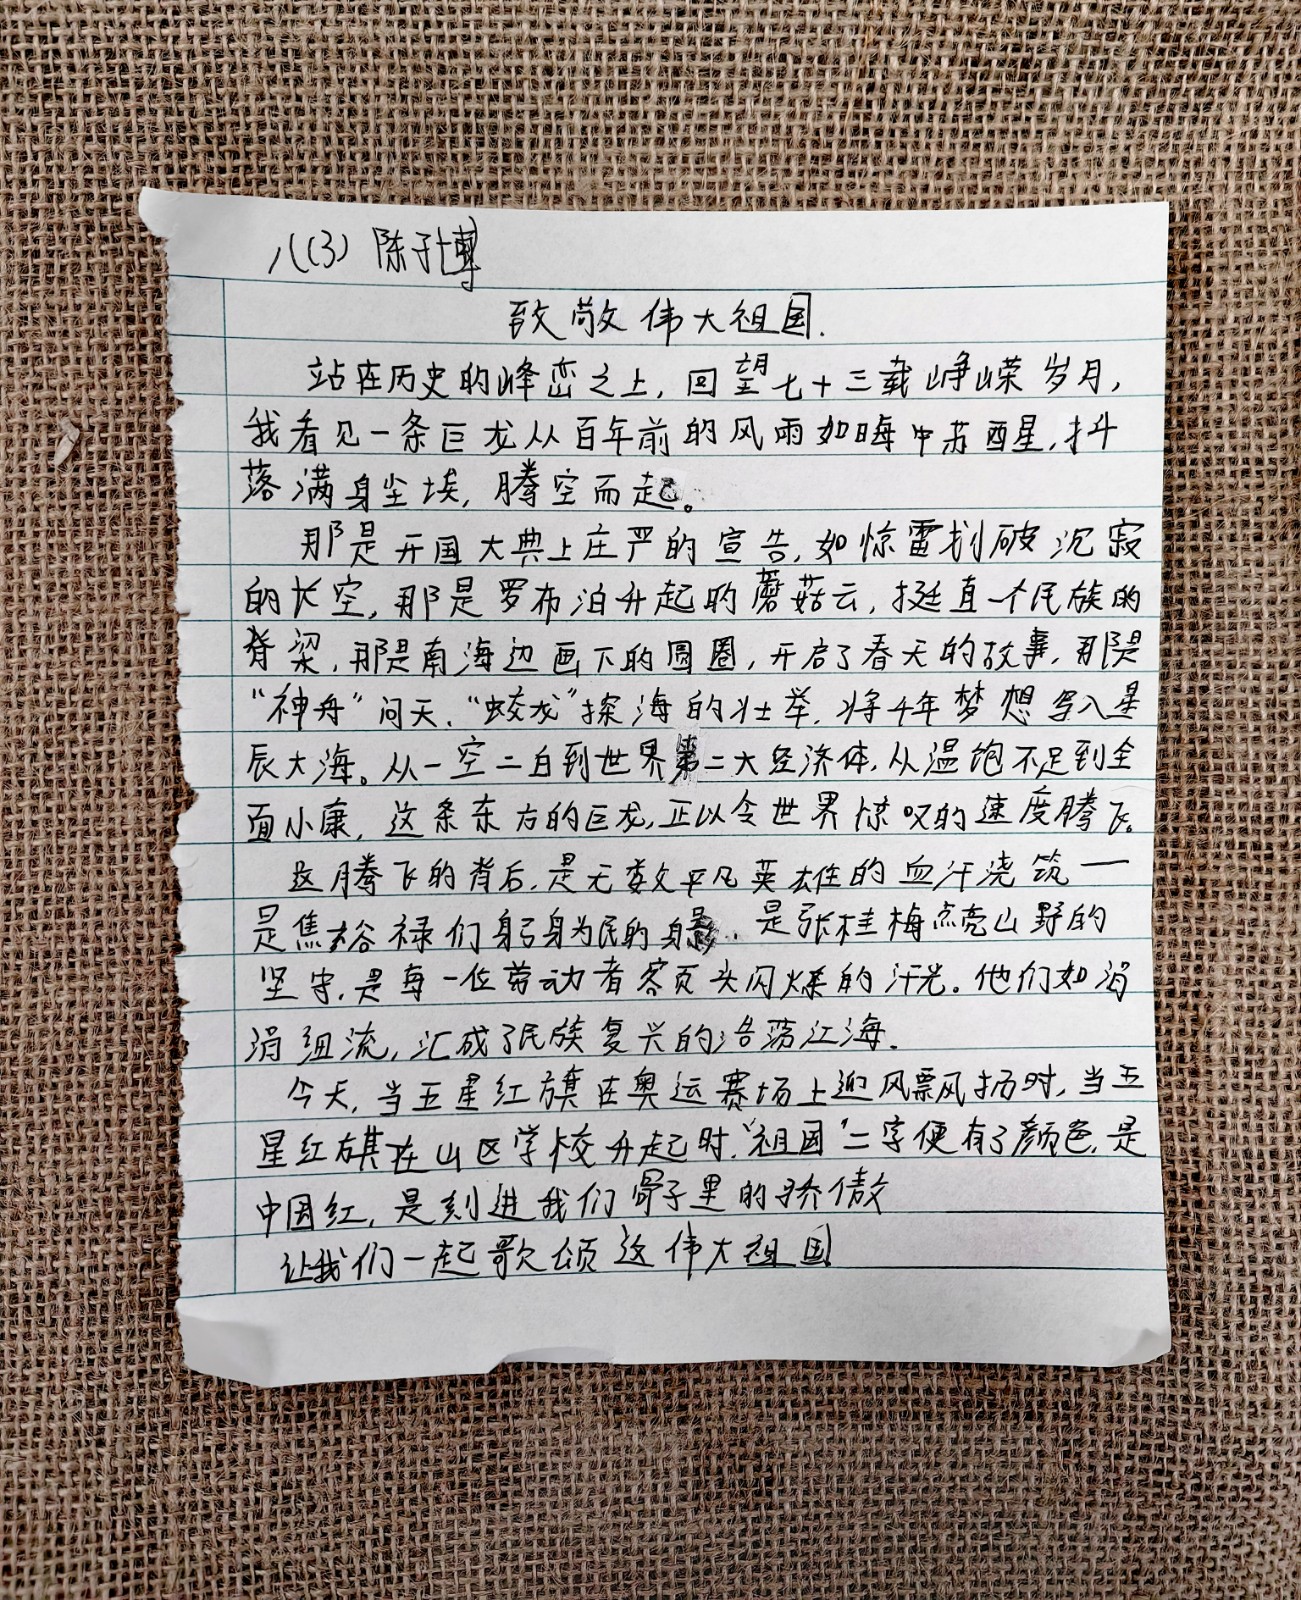 八(3) 陈子博
致敬伟大祖国.
站在历史的峰峦之上,回望七十三载峥嵘岁月,
我看见一条巨龙从百年前的风雨如晦中苏醒,抖
落满身尘埃,腾空而起。
那是开国大典上庄严的宣告,如惊雷划破沉寂
的长空,那是罗布泊升起的蘑菇云,挺直一个民族的
脊梁,那是南海边画下的圆圈,开启了春天的故事,那是
“神舟”问天、“蛟龙”探海的壮举,将千年梦想写入星
辰大海。从一空二白到世界第二大经济体,从温饱不足到全
面小康,这条东方的巨龙,正以令世界惊叹的速度腾飞。
这腾飞的背后,是无数平凡英雄的血汗浇筑—
是焦裕禄们躬身为民的身影.. 是张桂梅点亮山野的
坚守,是每一位劳动者额头闪烁的汗光。他们如涓
涓细流,汇成了民族复兴的浩荡江海.
今天,当五星红旗在奥运赛场上迎风飘扬时,当五
星红旗在山区学校升起时,“祖国”二字便有了颜色,是
中国红,是刻进我们骨子里的骄傲
让我们一起歌颂这伟大祖国